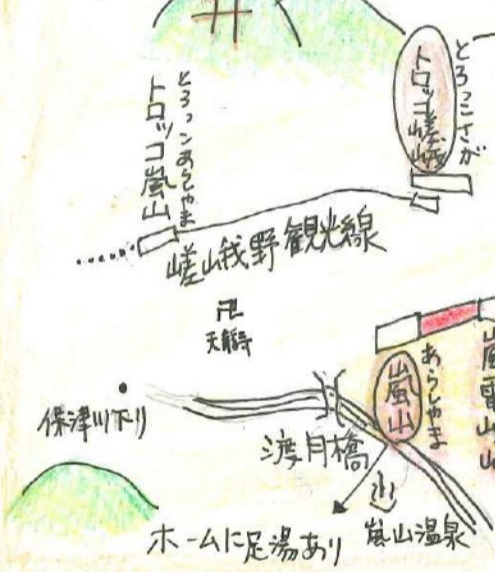 とろっこさが
トロッコ嵯峨
とろっこあらしやま
トロッコ嵐山
嵯峨野観光線
卍
天龍寺
あらしやま
嵐山
保津川下り
渡月橋
嵐山温泉
ホームに足湯あり